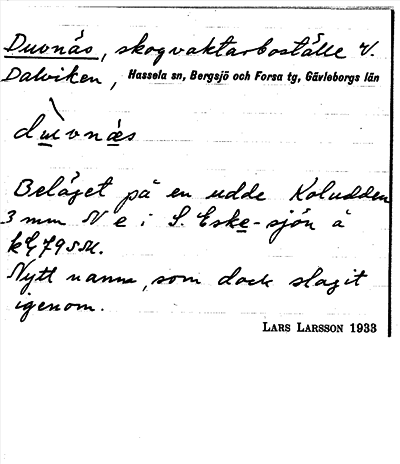 Duvnäs, skogvaktarboställe V.
Dalviken, Hassela sn, Bergsjö och Forsa tg, Gävleborgs län
duvnæs
Beläget på en udde Koludden
3 mm N e i S. Eske-sjön å
kbl 79 SSV.
Nytt namn, som dock slagit
igenom.
LARS LARSSON 1933